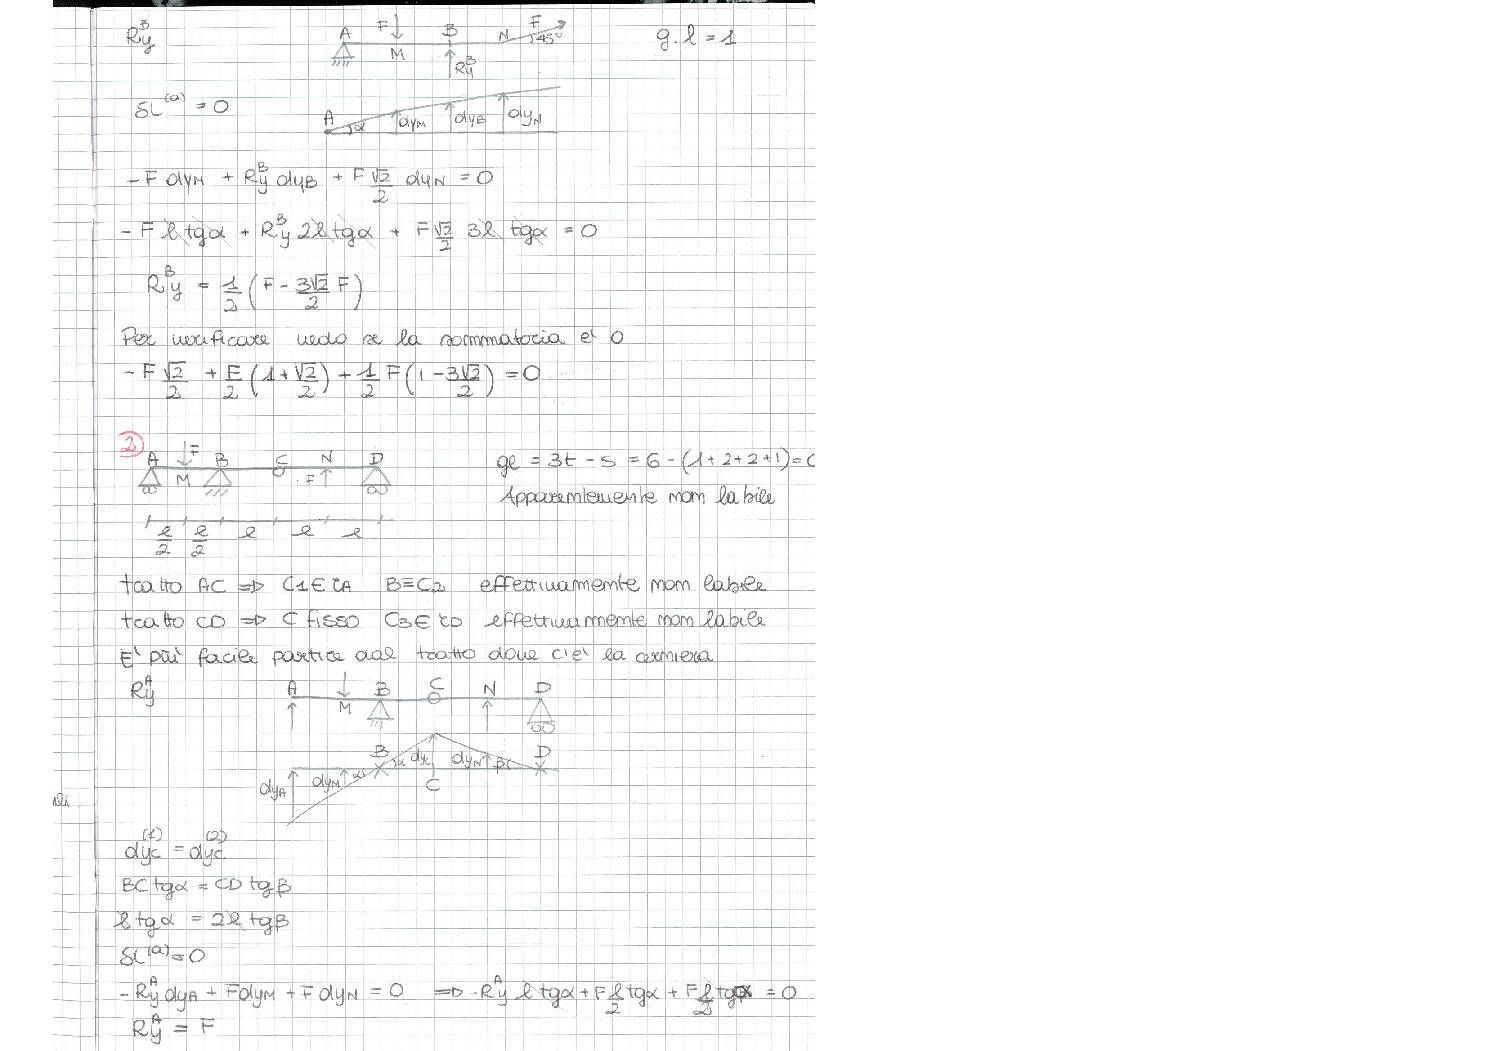 R_y^B
A F M B R_y^B N F 45° g.l = 1
δL^(a) = 0
A α dyM dyB dyN
-F dyM + R_y^B dyB + F √2/2 dyN = 0
-F l tgα + R_y^B 2l tgα + F √2/2 3l tgα = 0
R_y^B = 1/2 (F - 3√2/2 F)
Per verificare vedo se la sommatoria e' 0
-F √2/2 + F/2 (1 + √2/2) + 1/2 F (1 - 3√2/2) = 0
2
A F M B C F N D
gl = 3t - s = 6 - (1+2+2+1) = 0
Apparentemente non labile
l/2 l/2 l l l
tratto AC => C1 ∈ rA B ≡ C2 effettivamente non labile
tratto CD => C fisso C3 ∈ rD effettivamente non labile
E' più facile partire dal tratto dove c'è la cerniera
R_y^A
A M B C N D
dyA dyM α B α dyC C dyN β D
dyC^(1) = dyC^(2)
BC tgα = CD tgβ
l tgα = 2l tgβ
δL^(a) = 0
-R_y^A dyA + F dyM + F dyN = 0 => -R_y^A l tgα + F l/2 tgα + F l/2 tgα = 0
R_y^A = F